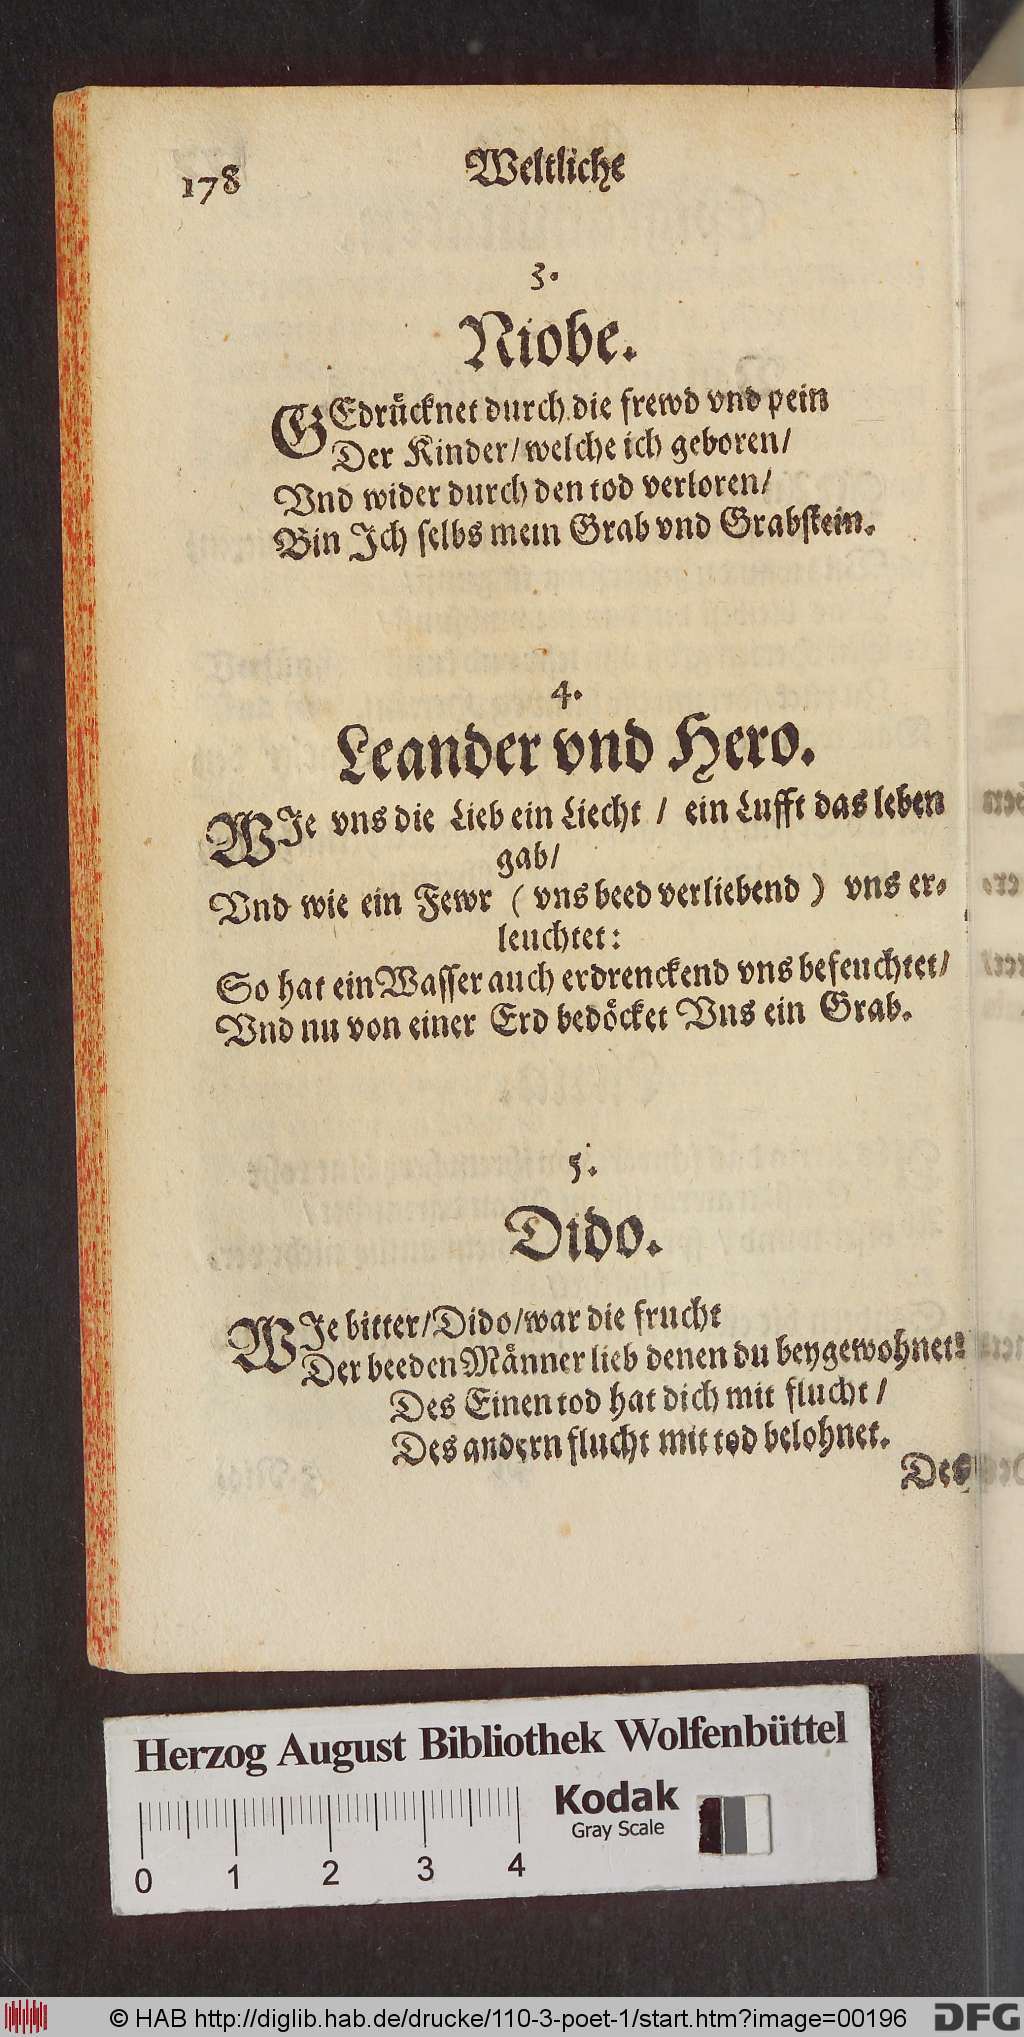 178
Weltliche
3.
Niobe.
GEdrücknet durch die frewd vnd pein
Der Kinder/ welche ich geboren/
Vnd wider durch den tod verloren/
Bin Ich selbs mein Grab vnd Grabstein.
4.
Leander vnd Hero.
WIe vns die Lieb ein Liecht / ein Lufft das leben
gab/
Vnd wie ein Fewr ( vns beed verliebend ) vns er-
leuchtet:
So hat ein Wasser auch erdrenckend vns befeuchtet/
Vnd nu von einer Erd bedöcket Vns ein Grab.
5.
Dido.
WIe bitter/ Dido/ war die frucht
Der beeden Männer lieb denen du beygewohnet?
Des Einen tod hat dich mit flucht /
Des andern flucht mit tod belohnet.
Des
Herzog August Bibliothek Wolfenbüttel
Kodak
Gray Scale
0 1 2 3 4
© HAB http://diglib.hab.de/drucke/110-3-poet-1/start.htm?image=00196
DFG